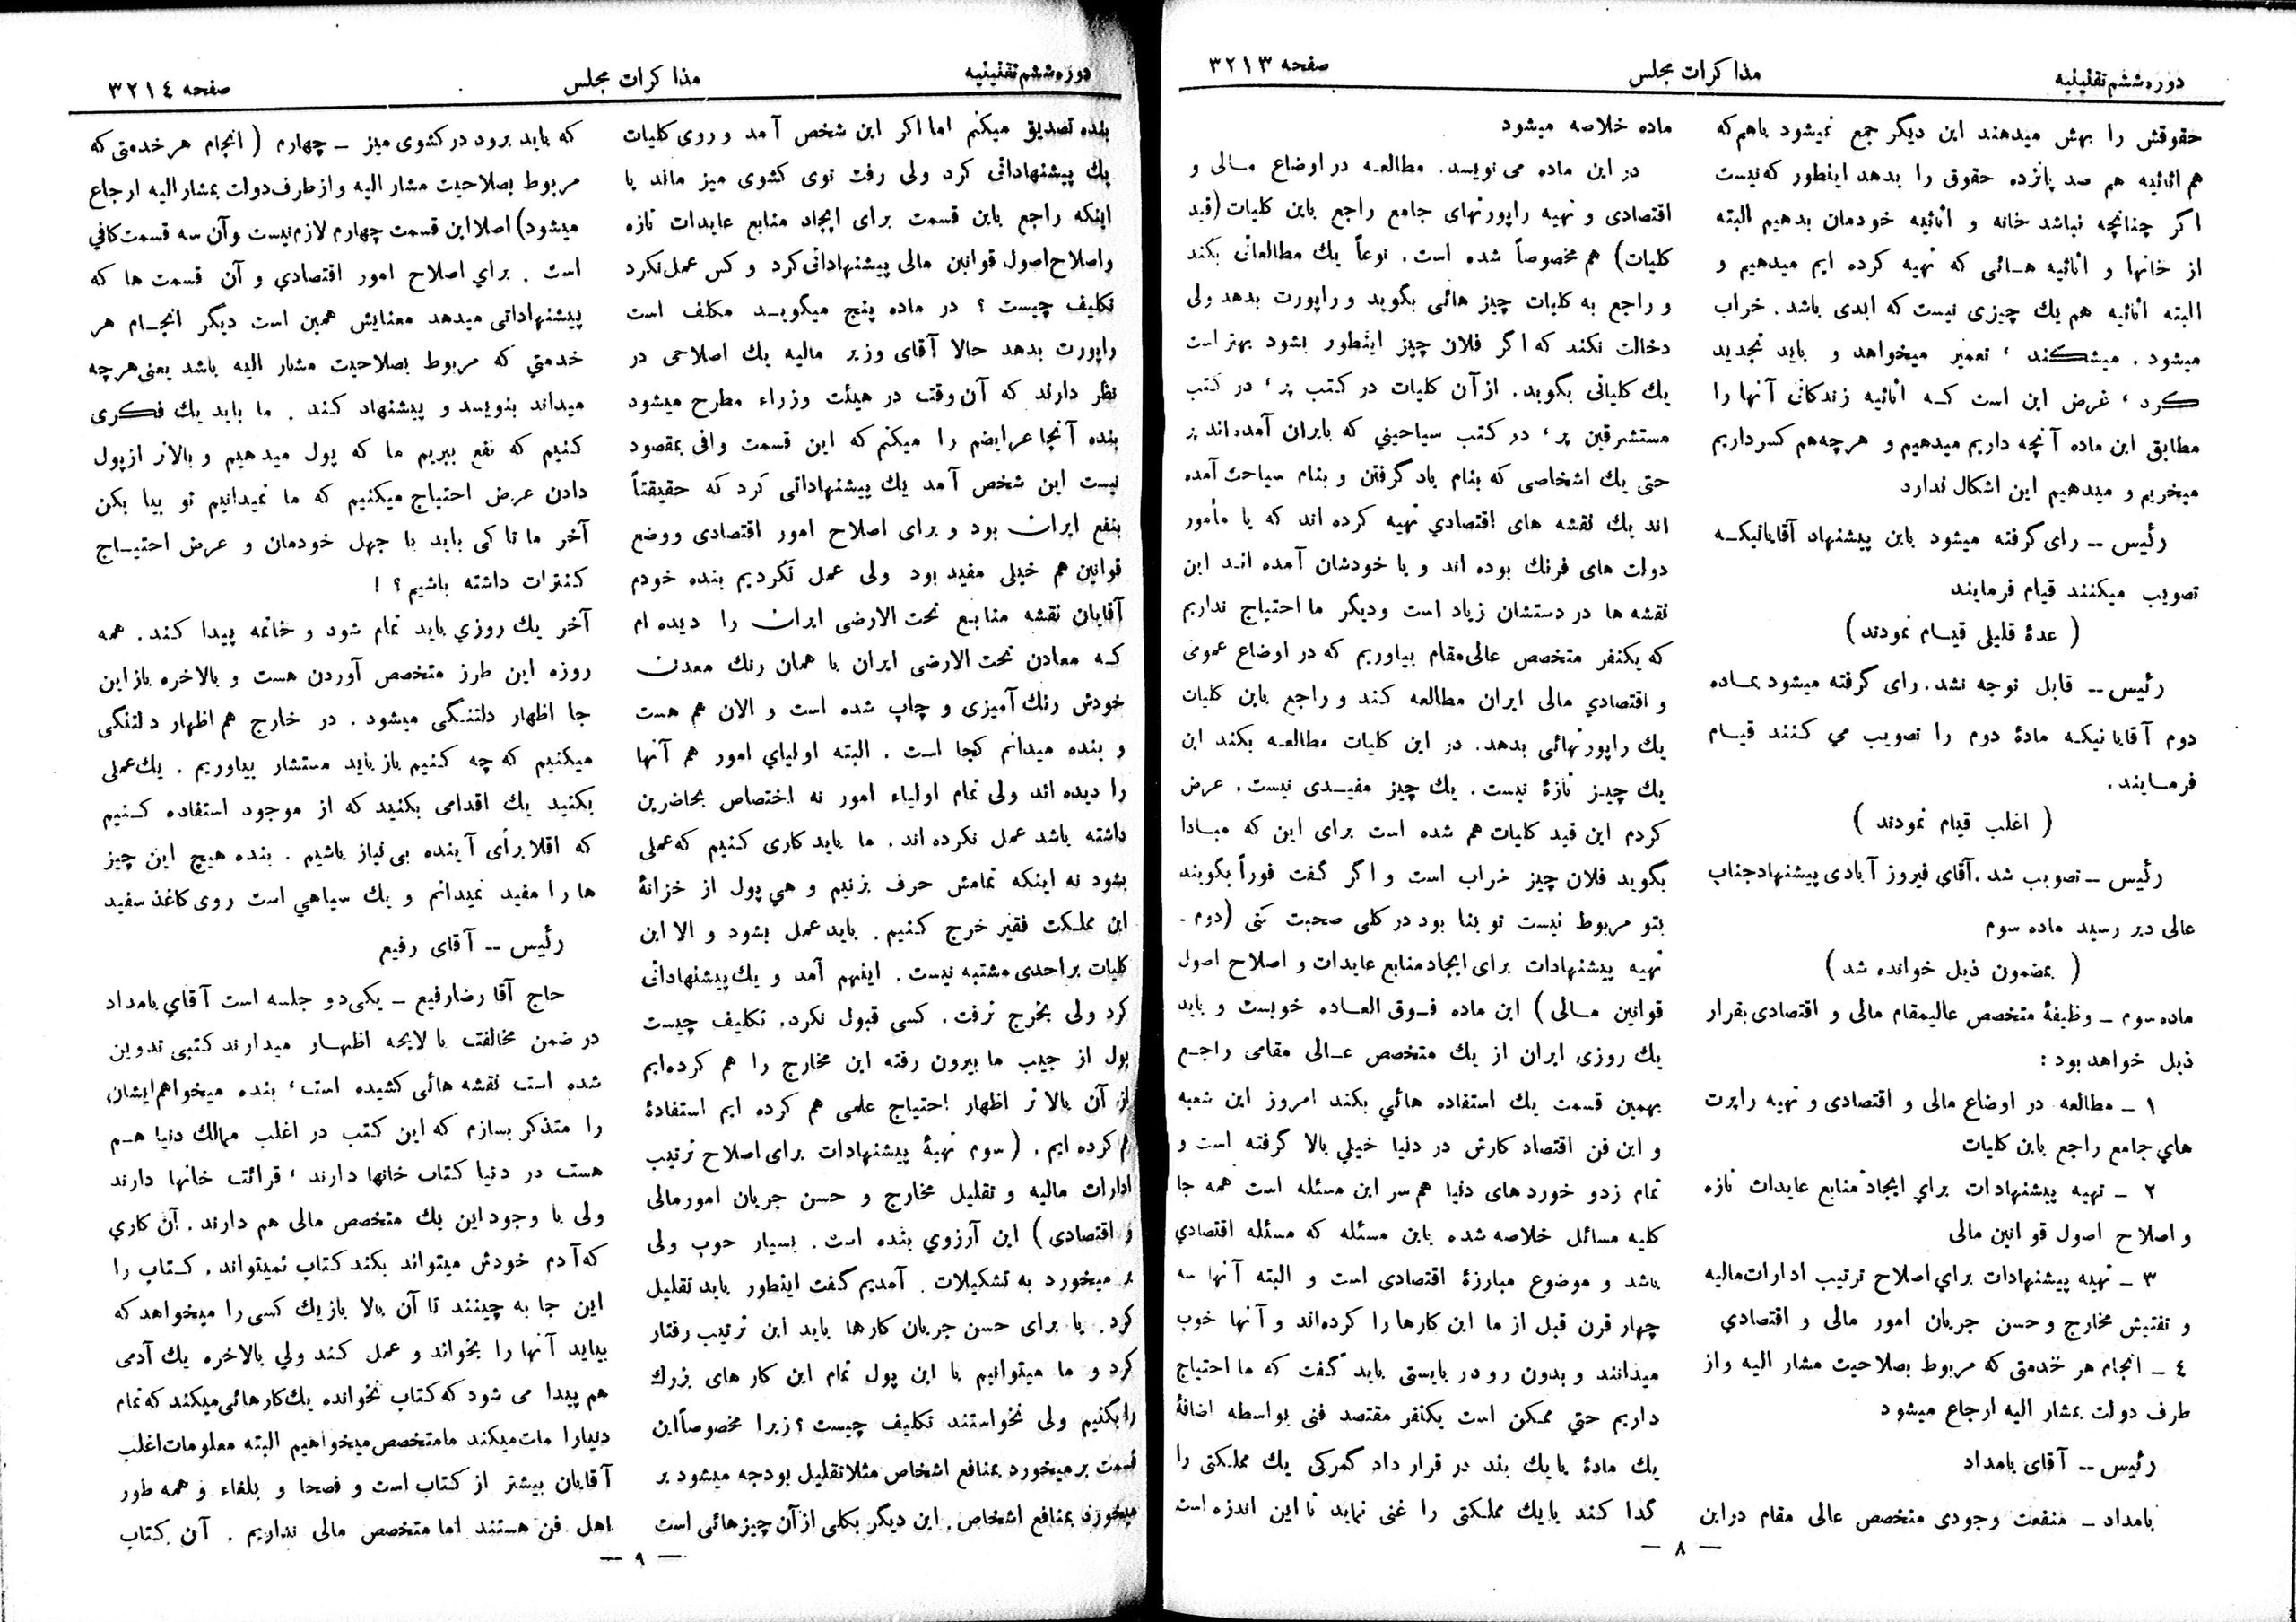 دوره ششم تقنینیه
مذاکرات مجلس
صفحه ۳۲۱۳
حقوقش را بهش میدهند این دیگر جمع نمیشود باهم که
هم اثاثیه هم صد پانزده حقوق را بدهد اینطور که نیست
اگر چنانچه نباشد خانه و اثاثیه خودمان بدهیم البته
از خانها و اثاثیه هائی که تهیه کرده ایم میدهیم و
البته اثاثیه هم یك چیزی نیست که ابدی باشد . خراب
میشود . میشکند ، تعمیر میخواهد و باید تجدید
کرد ، غرض این است که اثاثیه زندکانی آنها را
مطابق این ماده آنچه داریم میدهیم و هرچه هم کسر داریم
میخریم و میدهیم این اشکال ندارد
رئیس ــ رای گرفته میشود باین پیشنهاد آقایانیکه
تصویب میکنند قیام فرمایند
( عدهٔ قلیلی قیام نمودند )
رئیس ــ قابل توجه نشد . رای گرفته میشود بماده
دوم آقایانیکه مادهٔ دوم را تصویب می کنند قیام
فرمایند .
( اغلب قیام نمودند )
رئیس ــ تصویب شد . آقای فیروز آبادی پیشنهاد جناب
عالی دیر رسید ماده سوم
( بمضمون ذیل خوانده شد )
ماده سوم ــ وظیفهٔ متخصص عالیمقام مالی و اقتصادی بقرار
ذیل خواهد بود :
۱ ــ مطالعه در اوضاع مالی و اقتصادی و تهیه راپرت
های جامع راجع باین کلیات
۲ ــ تهیه پیشنهادات برای ایجاد منابع عایدات تازه
و اصلاح اصول قوانین مالی
۳ ــ تهیه پیشنهادات برای اصلاح ترتیب ادارات مالیه
و تفتیش مخارج و حسن جریان امور مالی و اقتصادی
٤ ــ انجام هر خدمتی که مربوط بصلاحیت مشار الیه و از
طرف دولت بمشار الیه ارجاع میشود
رئیس ــ آقای یامداد
یامداد ــ منفعت وجودی متخصص عالی مقام در این
ماده خلاصه میشود
در این ماده می نویسد . مطالعه در اوضاع مالی و
اقتصادی و تهیه راپورتهای جامع راجع باین کلیات (قید
کلیات) هم مخصوصاً شده است . نوعاً یك مطالعاتی بکند
و راجع به کلیات چیز هائی بگوید و راپورت بدهد ولی
دخالت نکند که اگر فلان چیز اینطور بشود بهتر است
یك کلیاتی بگوید . از آن کلیات در کتب پر ، در کتب
مستشرقین پر ، در کتب سیاحینی که بایران آمده اند پر
حتی یك اشخاصی که بنام یاد گرفتن و بنام سیاحت آمده
اند یك نقشه های اقتصادی تهیه کرده اند که یا مأمور
دولت های فرنك بوده اند و یا خودشان آمده اند این
نقشه ها در دستشان زیاد است و دیگر ما احتیاج نداریم
که یکنفر متخصص عالی مقام بیاوریم که در اوضاع عمومی
و اقتصادی مالی ایران مطالعه کند و راجع باین کلیات
یك راپورتهائی بدهد . در این کلیات مطالعه بکند این
یك چیز تازهٔ نیست . یك چیز مفیدی نیست . عرض
کردم این قید کلیات هم شده است برای این که مبادا
بگوید فلان چیز خراب است و اگر گفت فوراً بگویند
بتو مربوط نیست تو بنا بود در کلی صحبت کنی (دوم ـ
تهیه پیشنهادات برای ایجاد منابع عایدات و اصلاح اصول
قوانین مالی ) این ماده فوق العاده خوبست و باید
یك روزی ایران از یك متخصص عالی مقامی راجع
بهمین قسمت یك استفاده هائی بکند امروز این شعبه
و این فن اقتصاد کارش در دنیا خیلی بالا گرفته است و
تمام زدو خوردهای دنیا هم سر این مسئله است همه جا
کلیه مسائل خلاصه شده باین مسئله که مسئله اقتصادی
باشد و موضوع مبارزهٔ اقتصادی است و البته آنها سه
چهار قرن قبل از ما این کارها را کرده اند و آنها خوب
میدانند و بدون رودر بایستی باید گفت که ما احتیاج
داریم حتی ممکن است یکنفر مقتصد فنی بواسطه اضافهٔ
یك مادهٔ یا یك بند در قرار داد گمرکی یك مملکتی را
گدا کند یا یك مملکتی را غنی نماید تا این اندزه است
— ۸ —
دوره ششم تقنینیه
مذاکرات مجلس
صفحه ۳۲۱٤
بنده تصدیق میکنم اما اکر این شخص آمد و روی کلیات
یك پیشنهاداتی کرد ولی رفت توی کشوی میز ماند یا
اینکه راجع باین قسمت برای ایجاد منابع عایدات تازه
و اصلاح اصول قوانین مالی پیشنهاداتی کرد و کس عمل نکرد
تکلیف چیست ؟ در ماده پنج میگوید مکلف است
راپورت بدهد حالا آقای وزیر مالیه یك اصلاحی در
نظر دارند که آن وقت در هیئت وزراء مطرح میشود
بنده آنجا عرایضم را میکنم که این قسمت وافی بمقصود
نیست این شخص آمد یك پیشنهاداتی کرد که حقیقتاً
بنفع ایران بود و برای اصلاح امور اقتصادی و وضع
قوانین هم خیلی مفید بود ولی عمل نکردیم بنده خودم
آقایان نقشه منابع تحت الارضی ایران را دیده ام
که معادن تحت الارضی ایران با همان رنك معدن
خودش رنك آمیزی و چاپ شده است و الان هم هست
و بنده میدانم کجا است . البته اولیای امور هم آنها
را دیده اند ولی تمام اولیاء امور نه اختصاص بحاضرین
داشته باشد عمل نکرده اند . ما باید کاری کنیم که عملی
بشود نه اینکه تمامش حرف بزنیم و هی پول از خزانهٔ
این مملکت فقیر خرج کنیم . باید عمل بشود و الا این
کلیات بر احدی مشتبه نیست . اینهم آمد و یك پیشنهاداتی
کرد ولی بخرج نرفت . کسی قبول نکرد . تکلیف چیست
پول از جیب ما بیرون رفته این مخارج را هم کرده ایم
از آن بالا تر اظهار احتیاج علمی هم کرده ایم استفادهٔ
هم کرده ایم . ( سوم تهیهٔ پیشنهادات برای اصلاح ترتیب
ادارات مالیه و تقلیل مخارج و حسن جریان امور مالی
و اقتصادی ) این آرزوی بنده است . بسیار خوب ولی
بر میخورد به تشکیلات . آمدیم گفت اینطور باید تقلیل
کرد . یا برای حسن جریان کارها باید این ترتیب رفتار
کرد و ما میتوانیم با این پول تمام این کار های بزرك
را بکنیم ولی نخواستند تکلیف چیست ؟ زیرا مخصوصاً این
قسمت بر میخورد بمنافع اشخاص مثلا تقلیل بودجه میشود بر
میخورد بمنافع اشخاص . این دیگر بکلی از آن چیز هائی است
که باید برود در کشوی میز ــ چهارم ( انجام هر خدمتی که
مربوط بصلاحیت مشار الیه و از طرف دولت بمشار الیه ارجاع
میشود) اصلا این قسمت چهارم لازم نیست و آن سه قسمت کافی
است . برای اصلاح امور اقتصادی و آن قسمت ها که
پیشنهاداتی میدهد معنایش همین است دیگر انجام هر
خدمتی که مربوط بصلاحیت مشار الیه باشد یعنی هرچه
میداند بنویسد و پیشنهاد کند . ما باید یك فکری
کنیم که نفع ببریم ما که پول میدهیم و بالاتر از پول
دادن عرض احتیاج میکنیم که ما نمیدانیم تو بیا بکن
آخر ما تا کی باید با جهل خودمان و عرض احتیاج
کنترات داشته باشیم ؟ !
آخر یك روزی باید تمام شود و خاتمه پیدا کند . همه
روزه این طرز متخصص آوردن هست و بالاخره باز این
جا اظهار دلتنگی میشود . در خارج هم اظهار دلتنگی
میکنیم که چه کنیم باز باید مستشار بیاوریم . یك عملی
بکنید یك اقدامی بکنید که از موجود استفاده کنیم
که اقلا برأی آینده بی نیاز باشیم . بنده هیچ این چیز
ها را مفید نمیدانم و یك سیاهی است روی کاغذ سفید
رئیس ــ آقای رفیع
حاج آقا رضا رفیع ــ یکی دو جلسه است آقای یامداد
در ضمن مخالفت با لایحه اظهار میدارند کتبی تدوین
شده است نقشه هائی کشیده است ، بنده میخواهم ایشان
را متذکر بسازم که این کتب در اغلب ممالك دنیا هم
هست در دنیا کتاب خانها دارند ، قرائت خانها دارند
ولی با وجود این یك متخصص مالی هم دارند . آن کاری
که آدم خودش میتواند بکند کتاب نمیتواند . کتاب را
این جا به چینند تا آن بالا باز یك کسی را میخواهد که
بیاید آنها را بخواند و عمل کند ولی بالاخره یك آدمی
هم پیدا می شود که کتاب نخوانده یك کارهائی میکند که تمام
دنیا را مات میکند ما متخصص میخواهیم البته معلومات اغلب
آقایان بیشتر از کتاب است و فصحا و بلغاء و همه طور
اهل فن هستند اما متخصص مالی نداریم . آن کتاب
— ۹ —